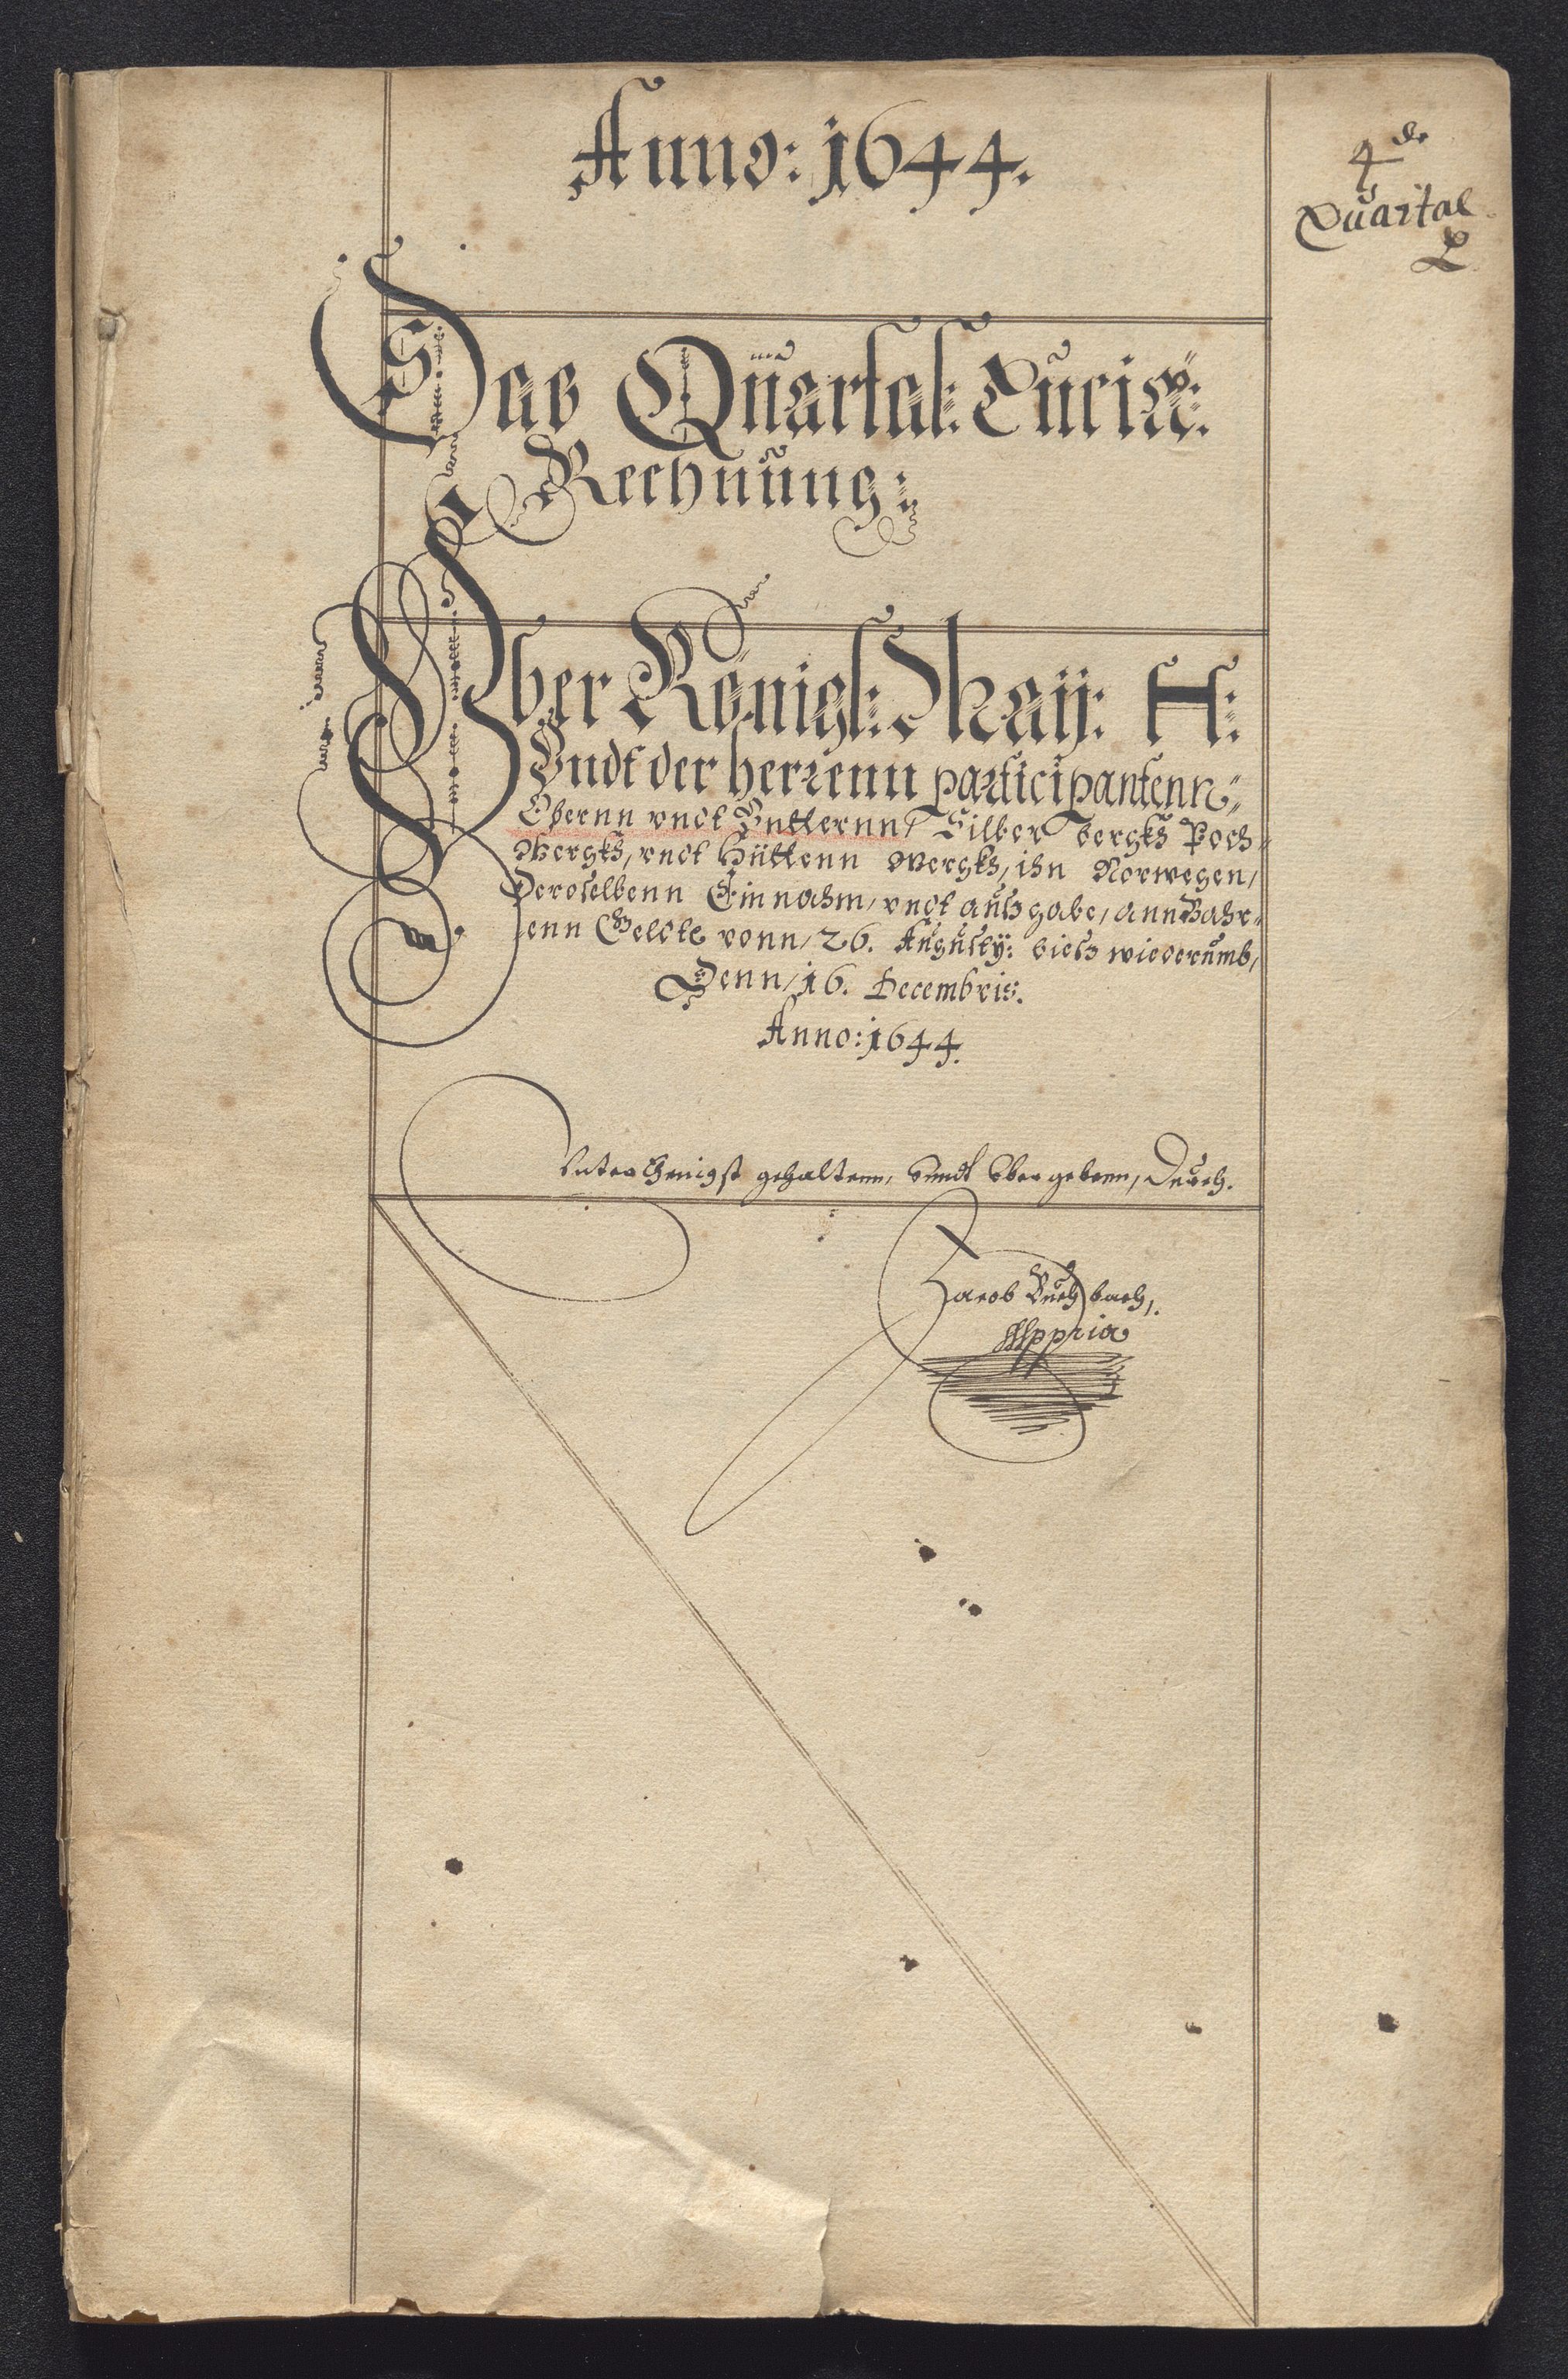 Anno: 1644.
4 de
Quartal
L
Das Quartal: Luciæ:
Rechnung:
Vber Königl: Maÿ: H:
Vndt der herrenn participantenn
Obernn vndt Vntternn, Silber bergks Poch
Wergks, vndt Hüttenn Wergks, ihn Norwegen,
Deroselbenn Einnahm, vndt außgabe, ann Bahr-
enn Geldte vonn, 26. Augustÿ: bieß wiederumb,
Denn, 16. Decembris.
Anno: 1644.
Vnterthenigst gehaltenn, vnndt vbergebenn, Durch.
Jacob Buchbach,.
Mppria